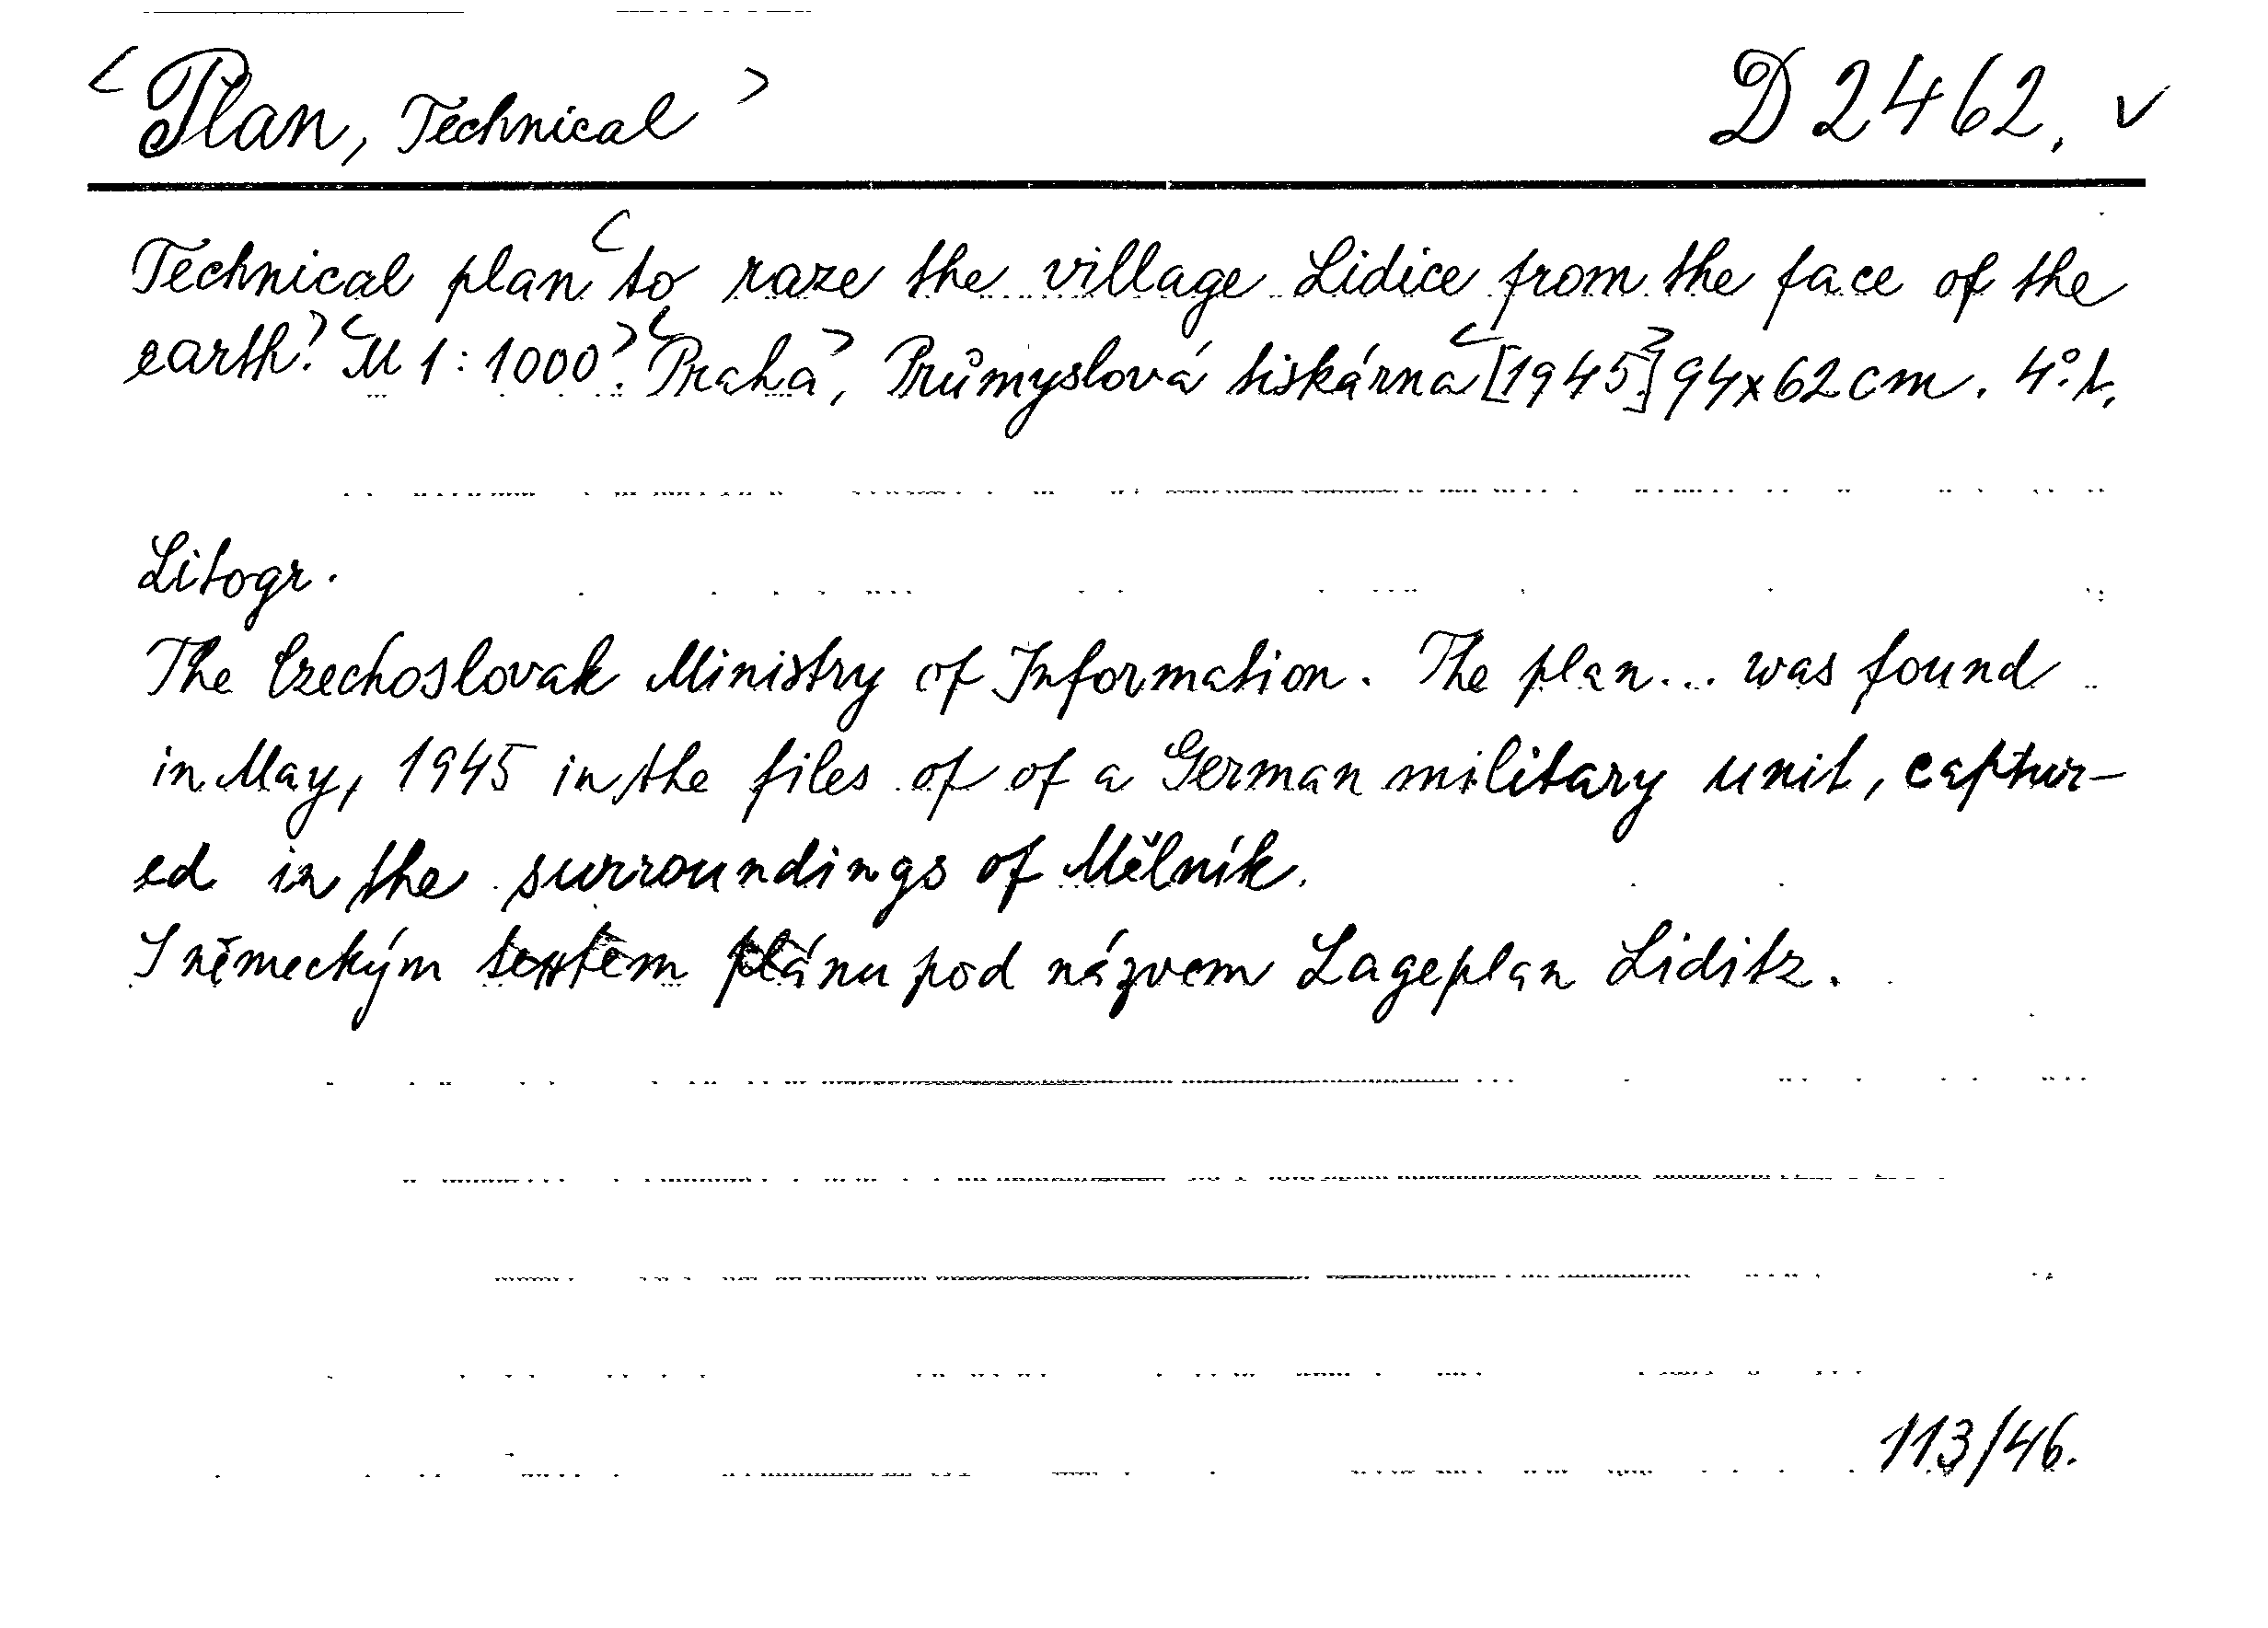 <Plan, Technical> D 2462. v
Technical plan <to raze the village Lidice from the face of the
earth.> <M 1:1000>. <Praha>, Průmyslová tiskárna <[1945.]> 94x62 cm. 4°. L.
Litogr.
The Czechoslovak Ministry of Information. The plan... was found
in May, 1945 in the files of of a German military unit, captur-
ed in the surroundings of Mělník.
S německým textem plánu pod názvem Lageplan Liditz.
113/46.